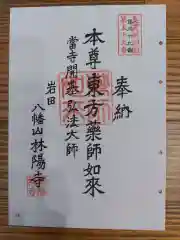 奉納
本尊東方藥師如來
當寺開基弘法大師
岩田
八幡山林陽寺